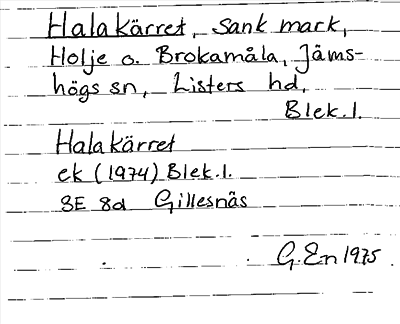 Halakärret, sank mark,
Holje o. Brokamåla, Jäms-
högs sn, Listers hd,
Blek.l.
Halakärret
ek (1974) Blek.l.
3E 8d Gillesnäs
G.En 1975.